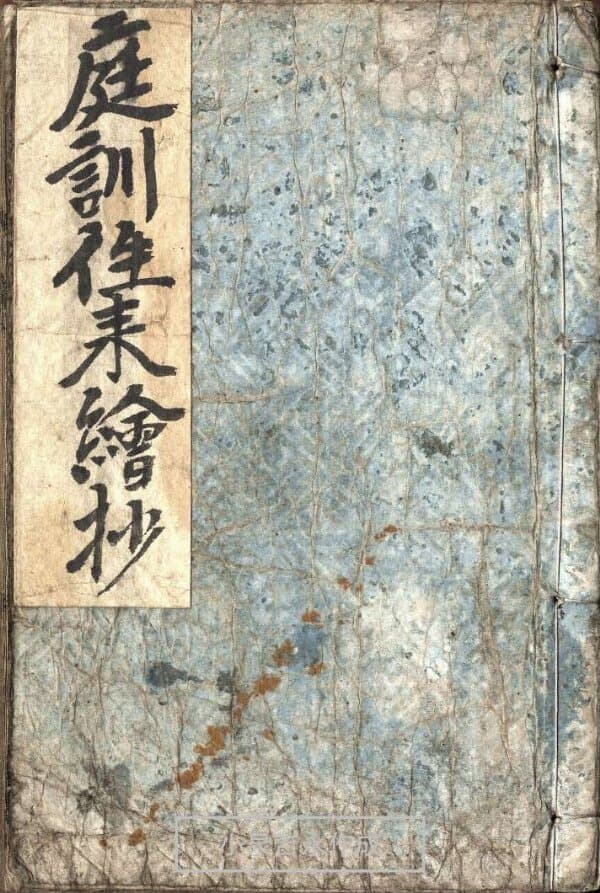 庭訓往来繪抄